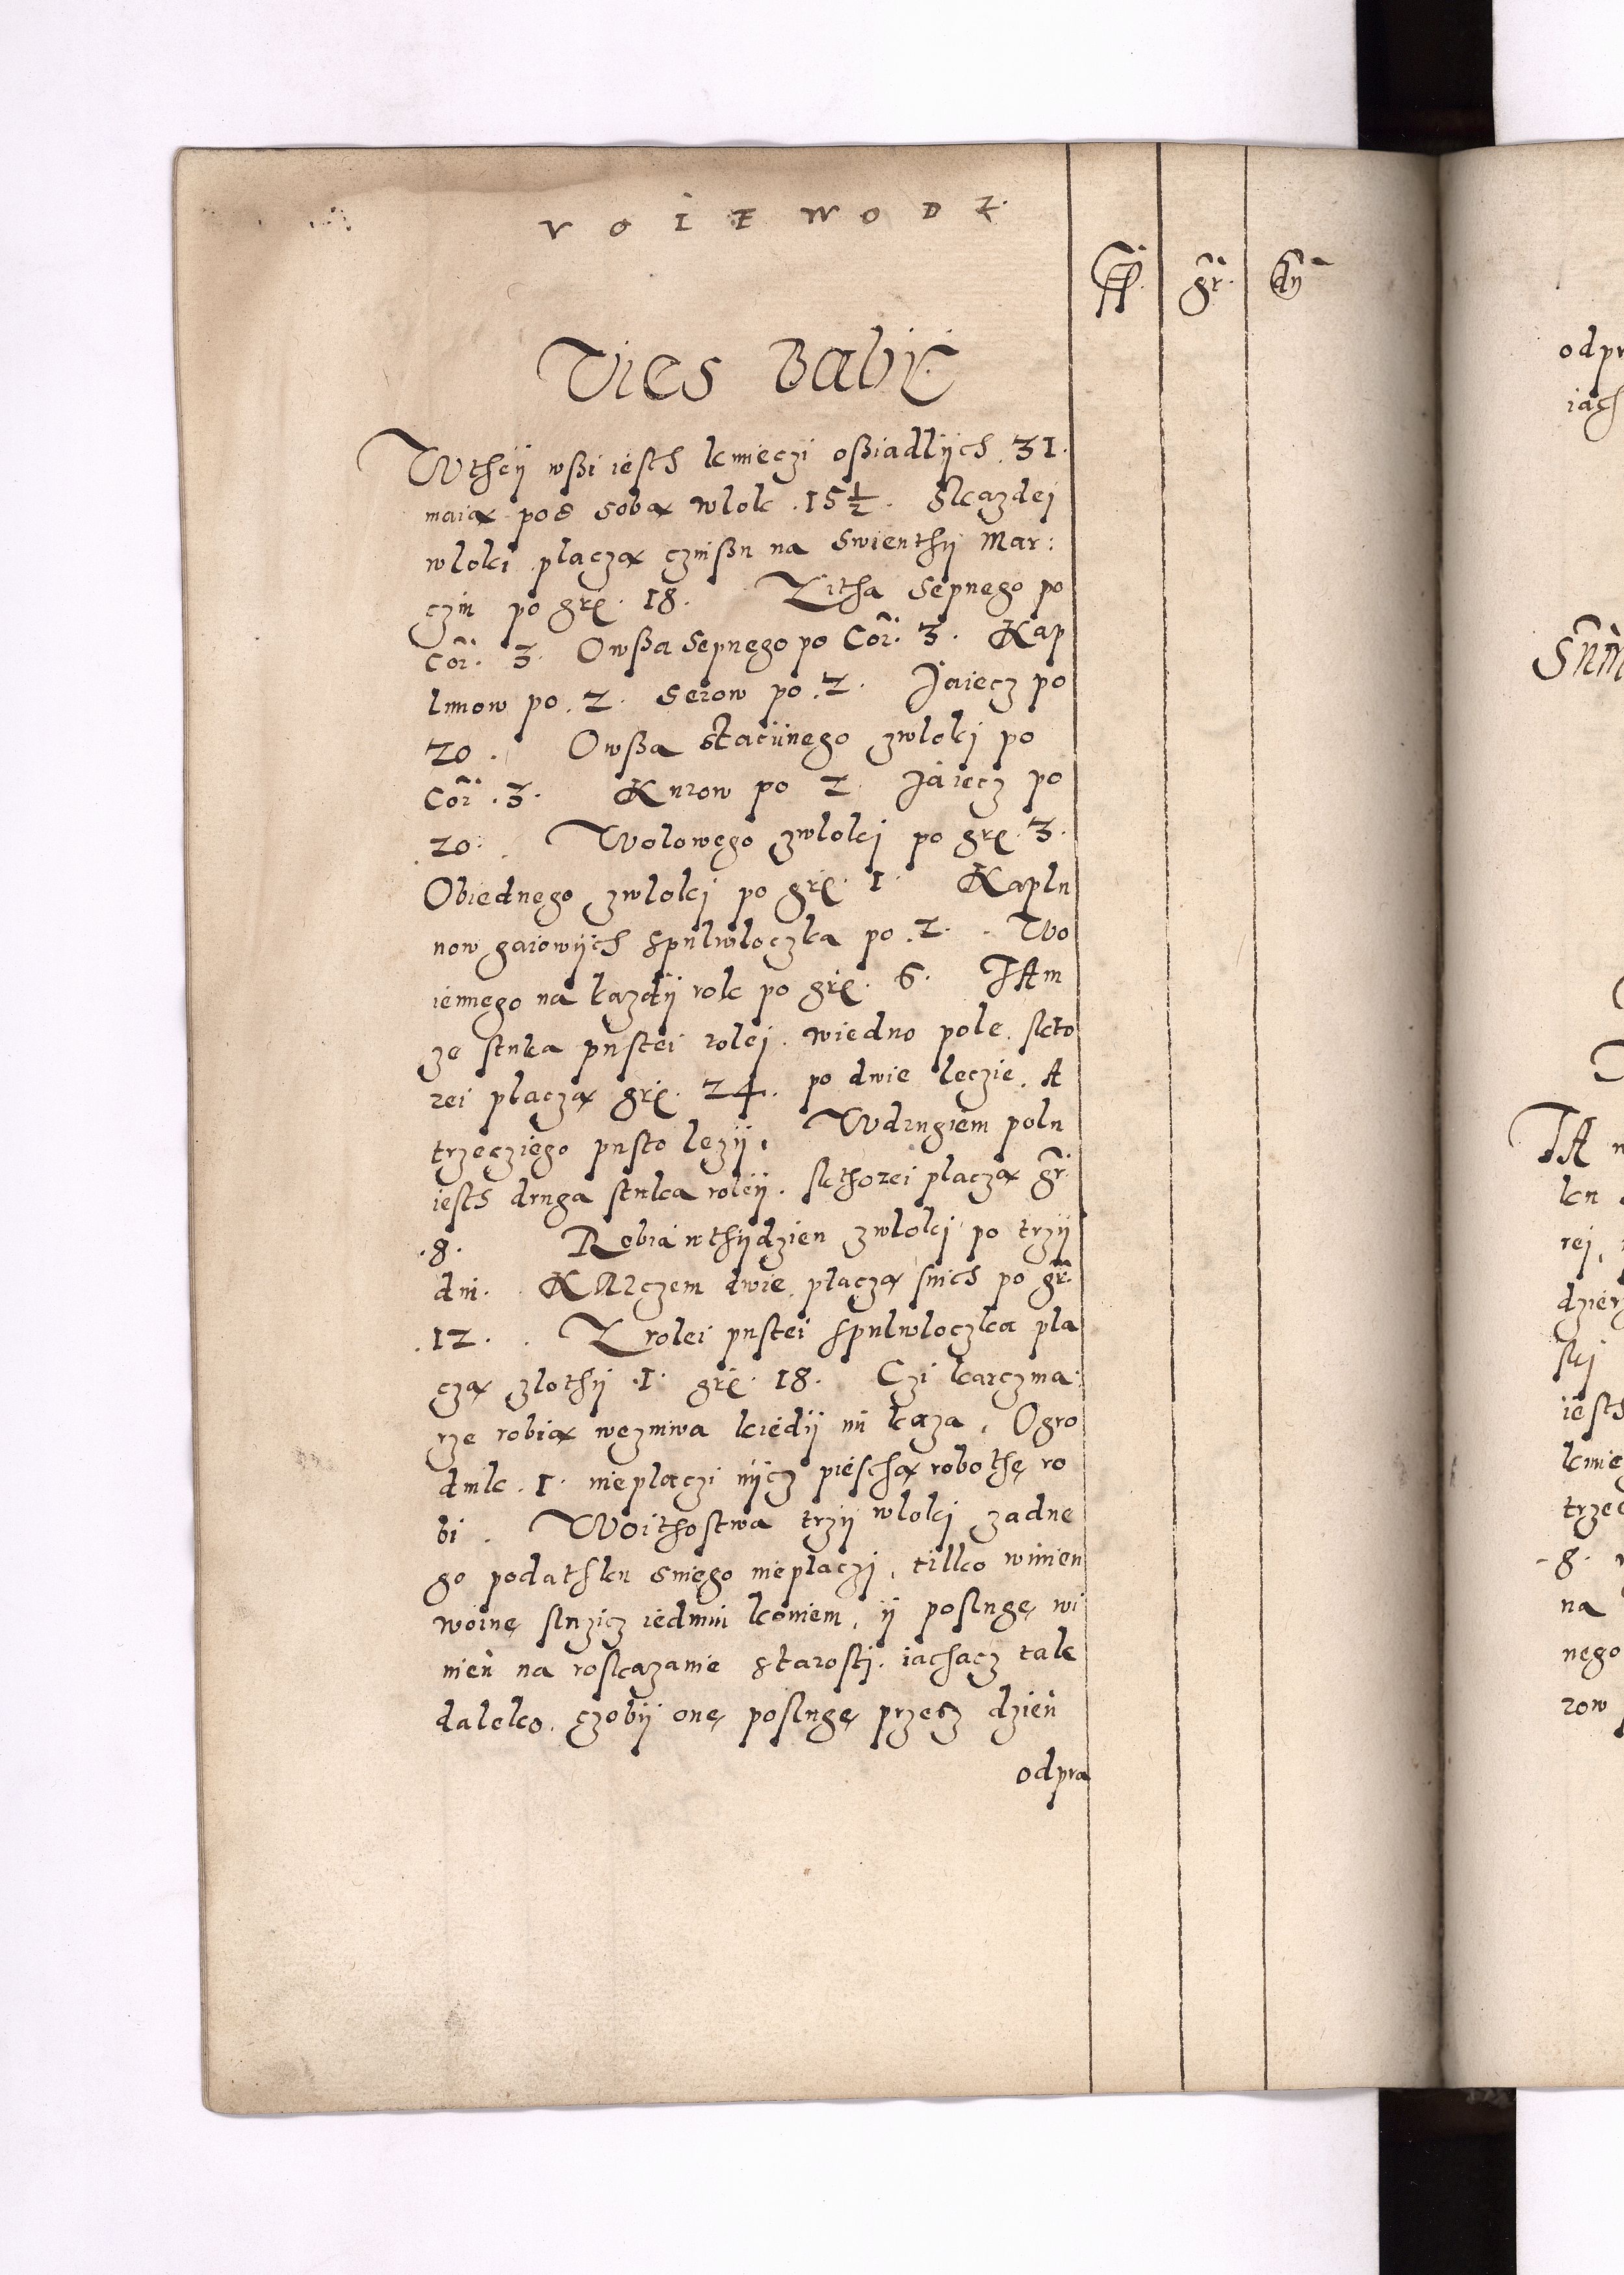 VOIEWODZ
fl. gr. dn
Vies Babÿ
Wtheÿ wßi iesth kmieczi oßiadlÿch . 31 .
maią pod sobą wlok . 15 ½ . Skazdej
wloki placzą czinßu na swienthÿ Mar:
czin po gr. 18 . Zitha sepnego po
Cor. 3 . Owßa sepnego po Cor. 3 . Kap
lunow po . 2 . Serow po . 2 . Jaiecz po
20 . Owßa staciinego zwloki po
Cor . 3 . Kurow po 2 . Jaiecz po
. 20 . Wolowego zwlokj po gr. 3 .
Obiednego zwlokj po gr. 1 . Kaplu
now gaiowÿch spulwloczka po . 2 . Wo
iennego na kazdÿ rok po gr. 6 . JAm
ze stuka pustei rolej . wiedno pole . skto
rei placzą gr. 24 . po dwie leczie . A
trzecziego pusto lezÿ . Wdrugiem polu
iesth druga stuka rolÿ . skthorei placzą gr.
. 8 . Robia wthÿdzien zwlokj po trzÿ
dni . KArczem dwie . placzą snich po gr.
. 12 . Z rolei pustei spulwloczka pla
czą zlothÿ . 1 . gr. 18 . Czi karczma:
rze robią wezniwa kiedÿ im kaza . Ogro
dnik . 1 . nieplaczi nÿcz pieschą robothę ro
bi . Woithostwa trzÿ wlokj zadne
go podathku sniego nieplaczj . tilko winien
woinę sluzicz iednim koniem . ÿ poslugę wi
nien na roskazanie starosti . iachacz tak
daleko . czobÿ onę poslugę przesz dzien
odpra
odpr
iach
rej
dzier
skj
iesth
kmie
trze
- 8 .
na
nego
row